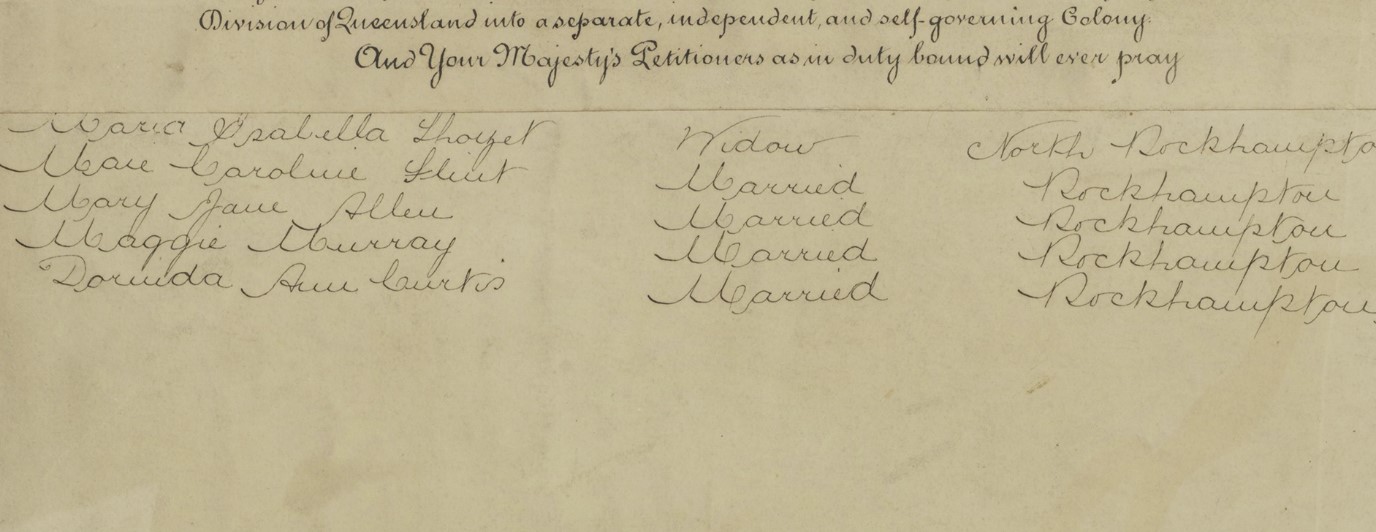 Division of Queensland into a separate, independent, and self-governing Colony.
And Your Majesty's Petitioners as in duty bound will ever pray
Maria Isabella Thozet Widow North Rockhampto
Caroline Flint Married Rockhampton
Mary Jane Allen Married Rockhampton
Maggie Murray Married Rockhampton
Dorinda Ann Curtis Married Rockhampton